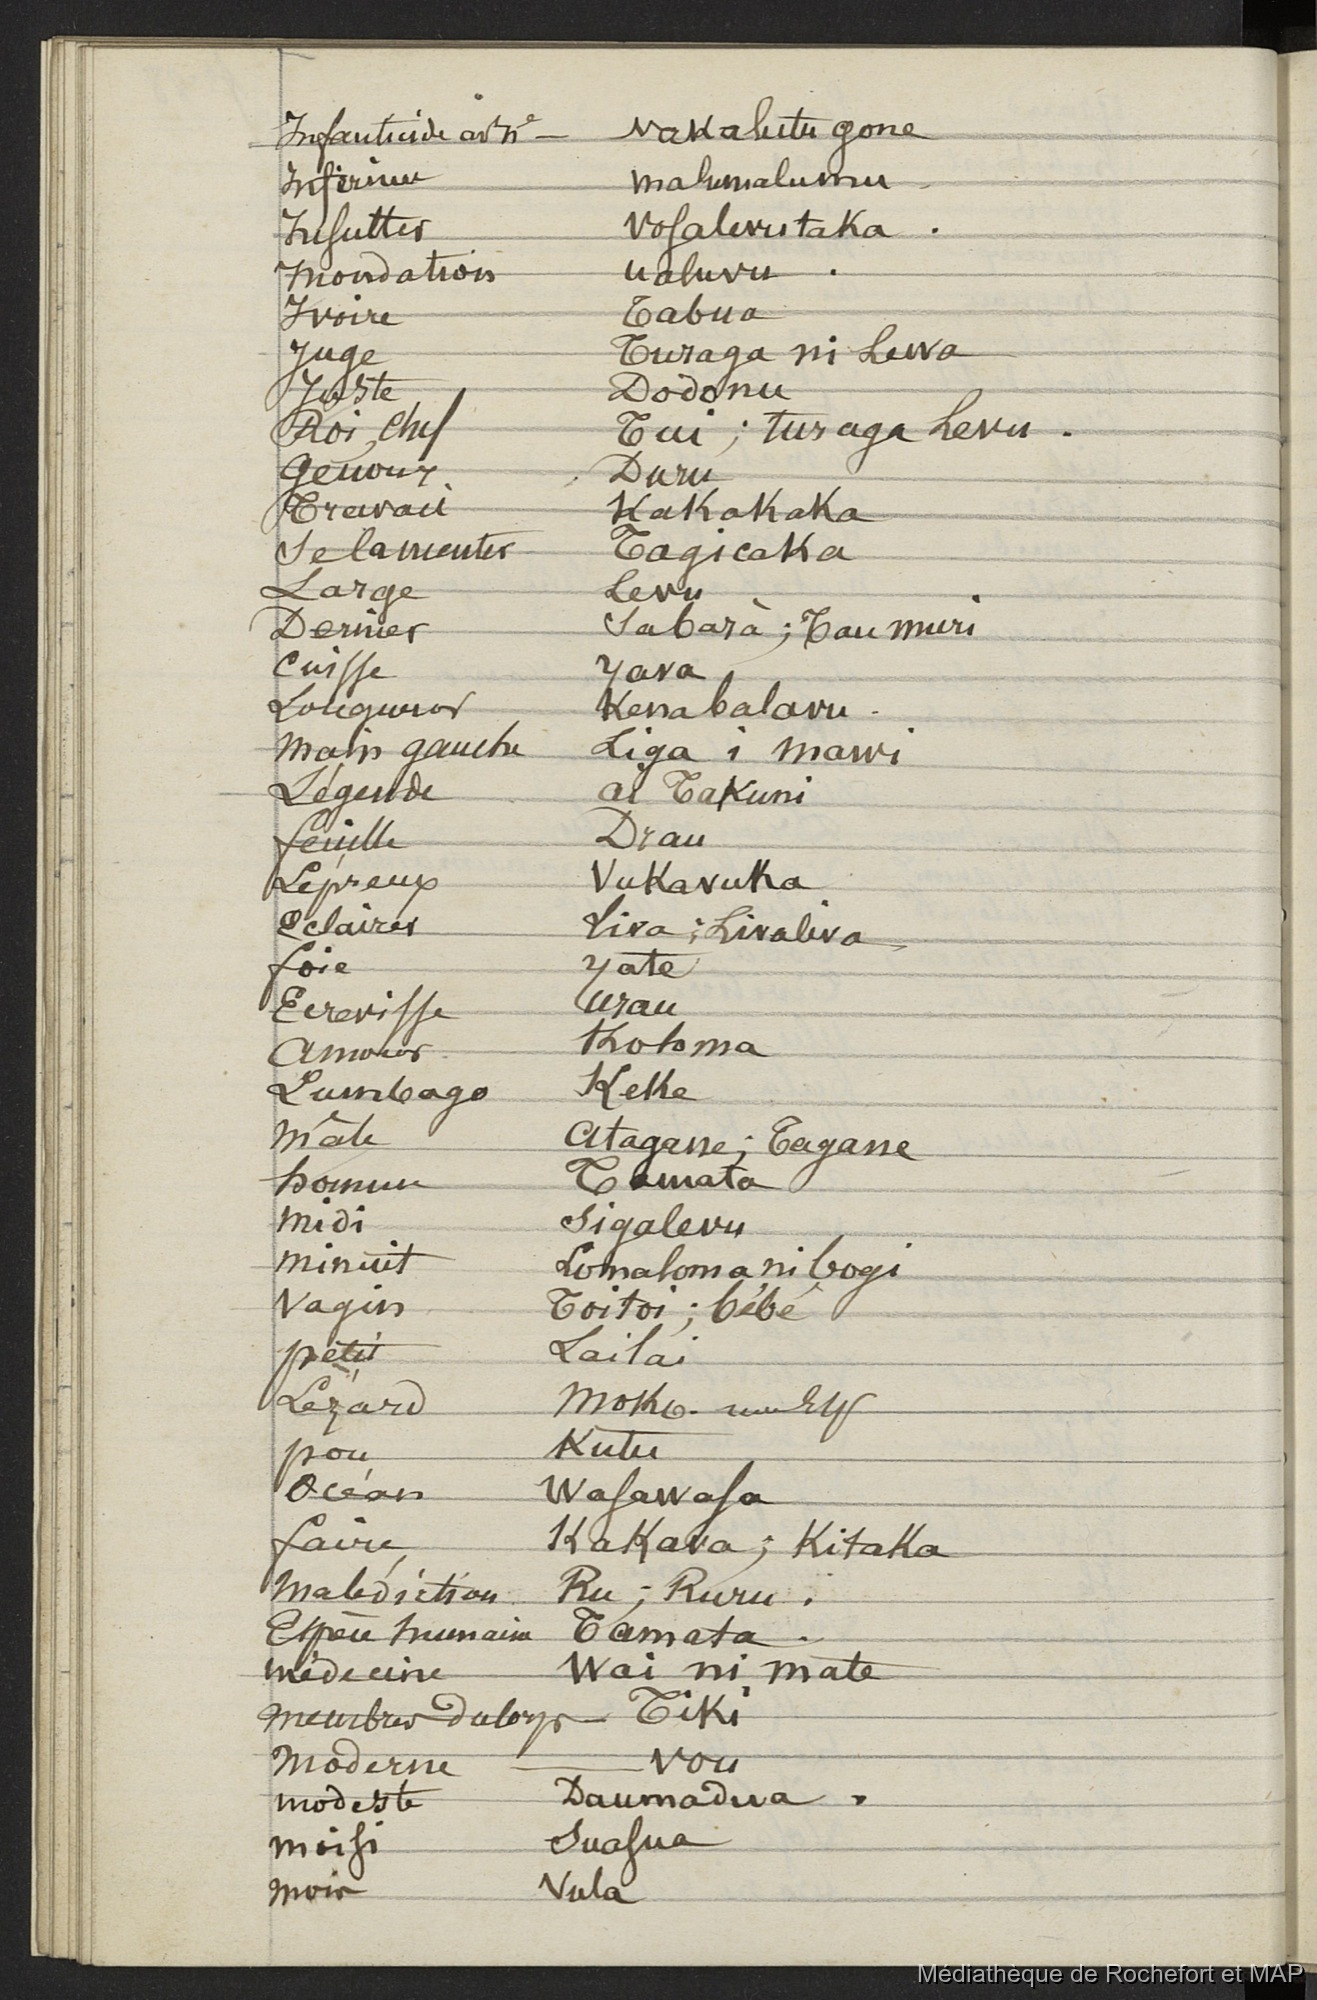 Infanticide avt né — vakalutu gone
Infirme malumalumu
Insulter Vosalevutaka .
Inondation ualuvu .
Ivoire Tabua
Juge Turaga ni Lewa
Juste Dodonu
Roi, chef Tui ; turaga Levu .
Genoux Duru
Travail Kakakaka
Se lamenter Tagicaka
Large Levu
Dernier Sabarà ; Tau muri
Cuisse yava
Longueur Kena balavu .
main gauche Liga i mawi
Légende ai Takuni
feuille Drau
Lépreux Vukavuka
Eclairer Liva ; Livaliva
foie yate
Ecrevisse Urau
Amour Koloma
Lumbago Keke
mâle Atagane ; Tagane
homme Tamata
midi Sigalevu
minuit Lomaloma ni bogi
Vagin Toitoi ; bébé
petit Lailai
Lézard Moko
pou Kutu
Océan Wasawasa
faire Kakava ; Kitaka
malédiction Ru ; Ruru .
Espèce humaine Tamata .
médecine Wai ni mate
membres du corps — Tiki
Moderne — vou
modeste Daumadua .
moisi Suasua
mois Vula
Médiathèque de Rochefort et MAP